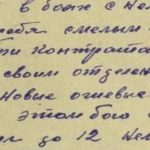 в боях с нем
себя смелым
при контрата
своим отделен
Новые огневые
этом бою
до 12 нем